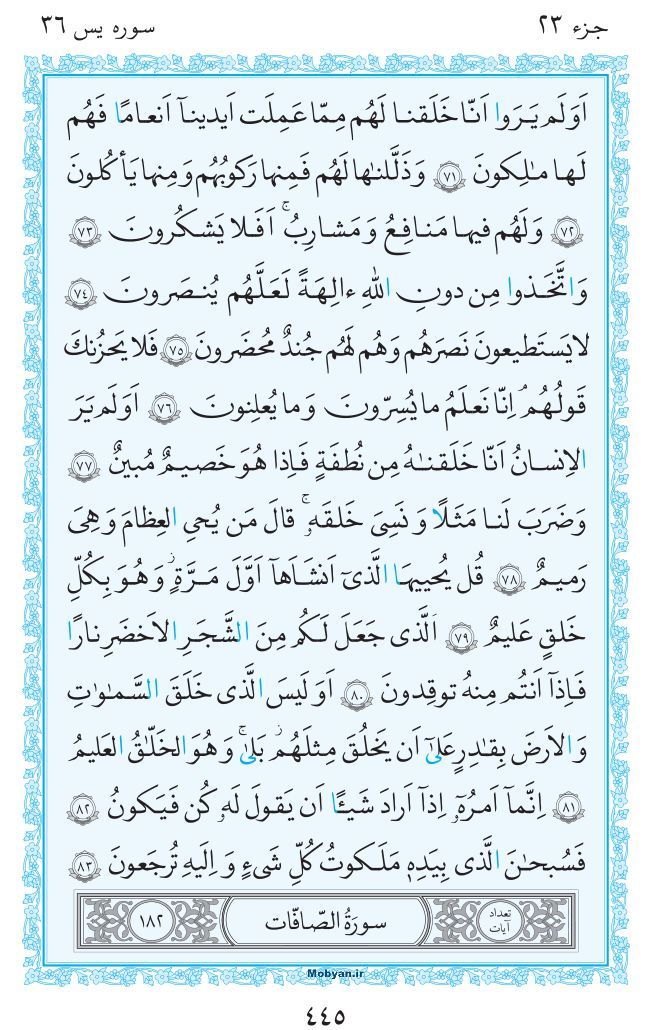 جزء ۲۳
سوره یس ۳۶
اَوَلَم يَرَوا اَنّا خَلَقنا لَهُم مِمّا عَمِلَت اَيدينآ اَنعامًا فَهُم
لَها مٰلِكونَ ﴿۷۱﴾ وَذَلَّلنٰها لَهُم فَمِنها رَكوبُهُم وَمِنها يَأكُلونَ
﴿۷۲﴾ وَلَهُم فيها مَنافِعُ وَمَشارِبُ ۚ اَفَلا يَشكُرونَ ﴿۷۳﴾
وَاتَّخَذوا مِن دونِ اللهِ ءالِهَةً لَعَلَّهُم يُنصَرونَ ﴿۷۴﴾
لا يَستَطيعونَ نَصرَهُم وَهُم لَهُم جُندٌ مُحضَرونَ ﴿۷۵﴾ فَلا يَحزُنكَ
قَولُهُم ۘ اِنّا نَعلَمُ ما يُسِرّونَ وَما يُعلِنونَ ﴿۷۶﴾ اَوَلَم يَرَ
الاِنسانُ اَنّا خَلَقنٰهُ مِن نُطفَةٍ فَاِذا هُوَ خَصيمٌ مُبينٌ ﴿۷۷﴾
وَضَرَبَ لَنا مَثَلًا وَنَسِىَ خَلقَهٗ ۚ قالَ مَن يُحىِ العِظامَ وَهِىَ
رَميمٌ ﴿۷۸﴾ قُل يُحييهَا الَّذىٓ اَنشَاَهآ اَوَّلَ مَرَّةٍ ۖ وَهُوَ بِكُلِّ
خَلقٍ عَليمٌ ﴿۷۹﴾ اَلَّذى جَعَلَ لَكُم مِنَ الشَّجَرِ الاَخضَرِ نارًا
فَاِذآ اَنتُم مِنهُ توقِدونَ ﴿۸۰﴾ اَوَلَيسَ الَّذى خَلَقَ السَّمٰوٰتِ
وَالاَرضَ بِقٰدِرٍ عَلىٰٓ اَن يَخلُقَ مِثلَهُم ۚ بَلىٰ وَهُوَ الخَلّٰقُ العَليمُ
﴿۸۱﴾ اِنَّمآ اَمرُهٗٓ اِذآ اَرادَ شَيـًٔا اَن يَقولَ لَهٗ كُن فَيَكونُ ﴿۸۲﴾
فَسُبحٰنَ الَّذى بِيَدِهٖ مَلَكوتُ كُلِّ شَىءٍ وَاِلَيهِ تُرجَعونَ ﴿۸۳﴾
تعداد آيات
سورَةُ الصّافّات
۱۸۲
Mobyan.ir
۴۴۵